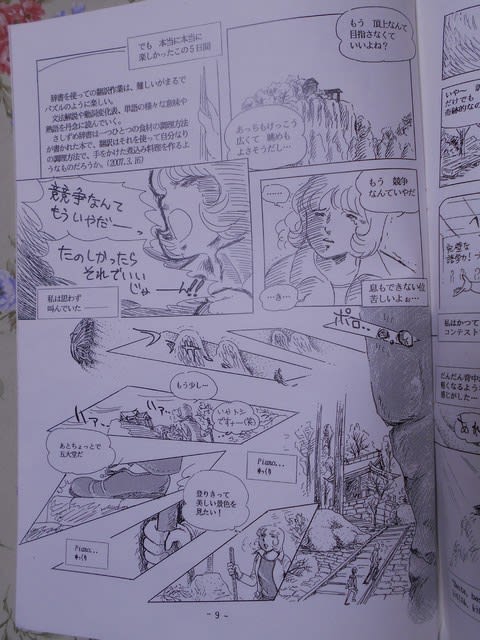 もう 頂上なんて
目指さなくて
いいよね？
あっちもけっこう
広くて 眺めも
よさそうだし…
でも 本当に本当に
楽しかったこの５日間
辞書を使っての翻訳作業は、難しいがまるで
パズルのように楽しい。
文法解説や動詞変化表、単語の様々な意味や
熟語を丹念に読んでいく。
さしずめ辞書は一つひとつの食材の調理方法
が書かれた本で、翻訳はそれを使って自分なり
の調理方法で、手をかけた煮込み料理を作るよ
うなものだろうか。(2007.3.16)
もう 競争
なんていやだ
……
…き…
息もできない位
苦しいよぉ…
競争なんて
もういやだー
たのしかったら
それでいい
じょーん!!
私は思わず
叫んでいた
ポロ..
もう少し～
ハァー
ハァー
いやトシ
ですナー(笑)
あとちょっとで
五大堂だ
Piano...
ゆっくり
登りきって
美しい景色を
見たい！
Piano...
ゆっくり
- 9 -
いや～
だけでも
奇跡的なの
完璧な
語学力！
私はかつて
コンテスト
だんだん背中
軽くなるよう
感じがした―